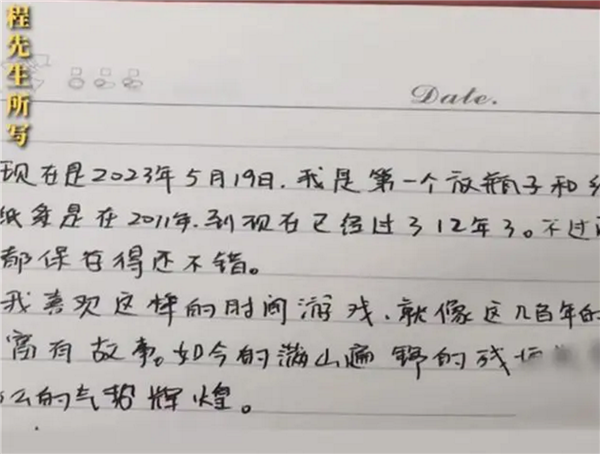 程先生所写
Date.
现在是2023年5月19日.我是第一个放瓶子和
纸条是在2011年.到现在已经过了12年了。不过
都保存得还不错。
我喜欢这样的时间游戏、就像这几百年的
富有故事。如今的满山遍野的残垣
么的气势辉煌。